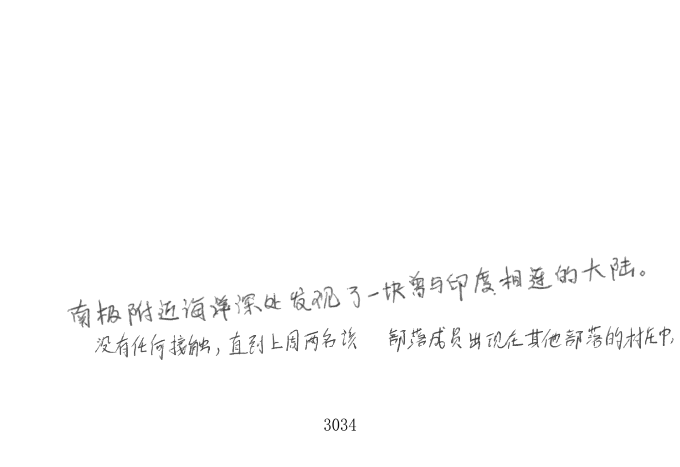 南极附近海洋深处发现了一块曾与印度相连的大陆。
没有任何接触，直到上周两名该 部落成员出现在其他部落的村庄中，
3034